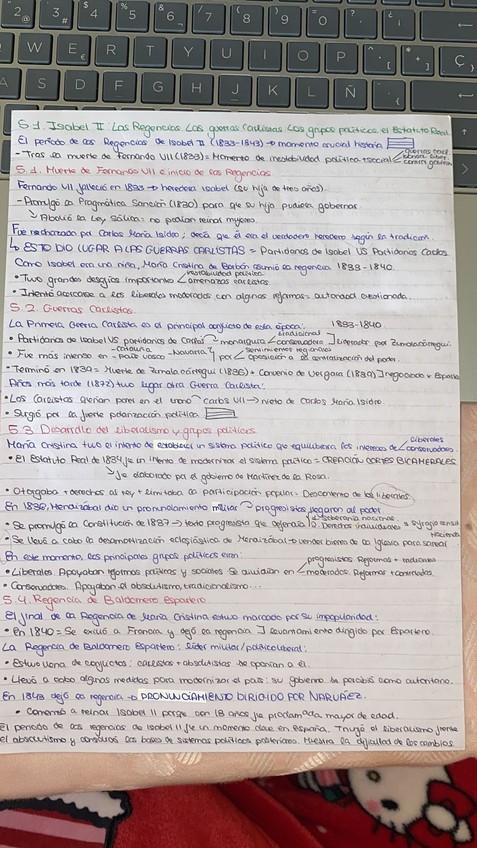 2 @ 3 # $ 4 % 5 & 6 / 7 ( 8 ) 9 = 0
W E R T Y U I O P
A S D F G H J K L Ñ Ç
5.1. Isabel II: Las Regencias Las guerras carlistas Los grupos políticos, el Estatuto Real
El período de las Regencias de Isabel II (1833-1843) → momento crucial historia
- Tras la muerte de Fernando VII (1833) = Momento de inestabilidad política + social guerras civil
5.1. Muerte de Fernando VII e inicio de las Regencias
Fernando VII falleció en 1833 → heredera Isabel (su hija de tres años).
- Promulgó la Pragmática Sanción (1830) para que su hija pudiera gobernar.
↘ Abolió la Ley Sálica: no podían reinar mujeres.
Fue rechazado por Carlos María Isidro; decía que él era el verdadero heredero según la tradición.
↳ ESTO DIO LUGAR A LAS GUERRAS CARLISTAS = Partidarios de Isabel VS Partidarios Carlos
Como Isabel era una niña, María Cristina de Borbón asumió la regencia 1833-1840.
• Tuvo grandes desafíos importante inestabilidad política amenazas carlistas
• Intentó acercarse a los liberales moderados con algunas reformas = autoridad cuestionada.
5.2. Guerras Carlistas.
La Primera Guerra Carlista es el principal conflicto de esta época: 1833-1840.
• Partidarios de Isabel VS partidarios de Carlos monarquía tradicional conservadora ] Liderado por Zumalacárregui.
• Fue más intenso en - Cataluña - País vasco - Navarra por sentimientos regionales oposición a la centralización del poder.
• Terminó en 1839 = Muerte de Zumalacárregui (1835) + Convenio de Vergara (1839) ] negociado x Espartero
Años más tarde (1872) tuvo lugar otra Guerra Carlista:
• Los Carlistas querían poner en el trono Carlos VII → nieto de Carlos María Isidro.
• Surgió por la fuerte polarización política
5.3. Desarrollo del liberalismo y grupos políticos
María Cristina tuvo el intento de establecer un sistema político que equilibrara los intereses de liberales conservadores.
• El Estatuto Real de 1834 fue un intento de modernizar el sistema político = CREACIÓN CORTES BICAMERALES
↘ fue elaborado por el gobierno de Martínez de la Rosa.
• Otorgaba + derechos al rey + limitaba la participación popular = Descontento de los liberales.
En 1836, Mendizábal dio un pronunciamiento militar → progresistas llegaron al poder
• Se promulgó la Constitución de 1837 → texto progresista que defendía lo: soberanía nacional Derechos individuales
• Se llevó a cabo la desamortización eclesiástica de Mendizábal → vender bienes de la Iglesia para sanear Hacienda
En este momento, los principales grupos políticos eran:
• Liberales. Apoyaban reformas políticas y sociales. Se dividían en progresistas Reformas + radicales moderados. Reformas + controladas.
• Conservadores. Apoyaban el absolutismo, tradicionalismo...
5.4. Regencia de Baldomero Espartero
El final de la Regencia de María Cristina estuvo marcado por su impopularidad:
• En 1840 = Se exilió a Francia y dejó la regencia ] levantamiento dirigido por Espartero.
La Regencia de Baldomero Espartero: líder militar/político liberal:
• Estuvo llena de conflictos: carlistas + absolutistas se oponían a él.
• Llevó a cabo algunas medidas para modernizar el país: su gobierno se percibió como autoritario.
En 1843 dejó la regencia → PRONUNCIAMIENTO DIRIGIDO POR NARVÁEZ.
• Comenzó a reinar Isabel II porque con 13 años fue proclamada mayor de edad.
El período de las regencias de Isabel II fue un momento clave en España. Triunfó el liberalismo frente
al absolutismo y construyó las bases de sistemas políticos posteriores. Muestra la dificultad de los cambios